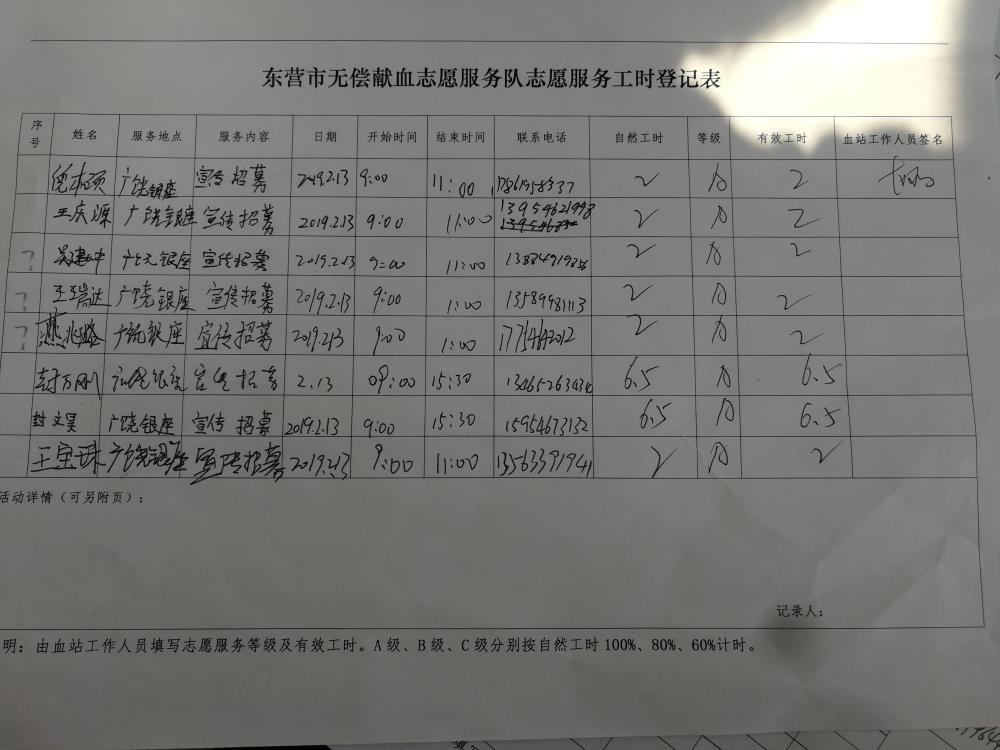 东营市无偿献血志愿服务队志愿服务工时登记表
序号 姓名 服务地点 服务内容 日期 开始时间 结束时间 联系电话 自然工时 等级 有效工时 血站工作人员签名
广饶银座 宣传招募 2019.2.13 9:00 11:00 17861958337 2 A 2
王庆源 广饶银座 宣传招募 2019.2.13 9:00 11:00 13954621998 2 A 2
? 吴建中 广饶银座 宣传招募 2019.2.13 9:00 11:00 2 A 2
? 王瑞达 广饶银座 宣传招募 2019.2.13 9:00 1:00 13589981113 2 A 2
? 燕兆路 广饶银座 宣传招募 2019.2.13 9:00 1:00 17754642012 2 A 2
封万刚 广饶银座 宣传招募 2.13 09:00 15:30 13465263434 6.5 A 6.5
封文昊 广饶银座 宣传招募 2019.2.13 9:00 15:30 15954673132 6.5 A 6.5
王宝珠 广饶银座 宣传招募 2019.2.13 9:00 11:00 13563391941 2 A 2
活动详情（可另附页）：
记录人：
明：由血站工作人员填写志愿服务等级及有效工时。A级、B级、C级分别按自然工时100%、80%、60%计时。